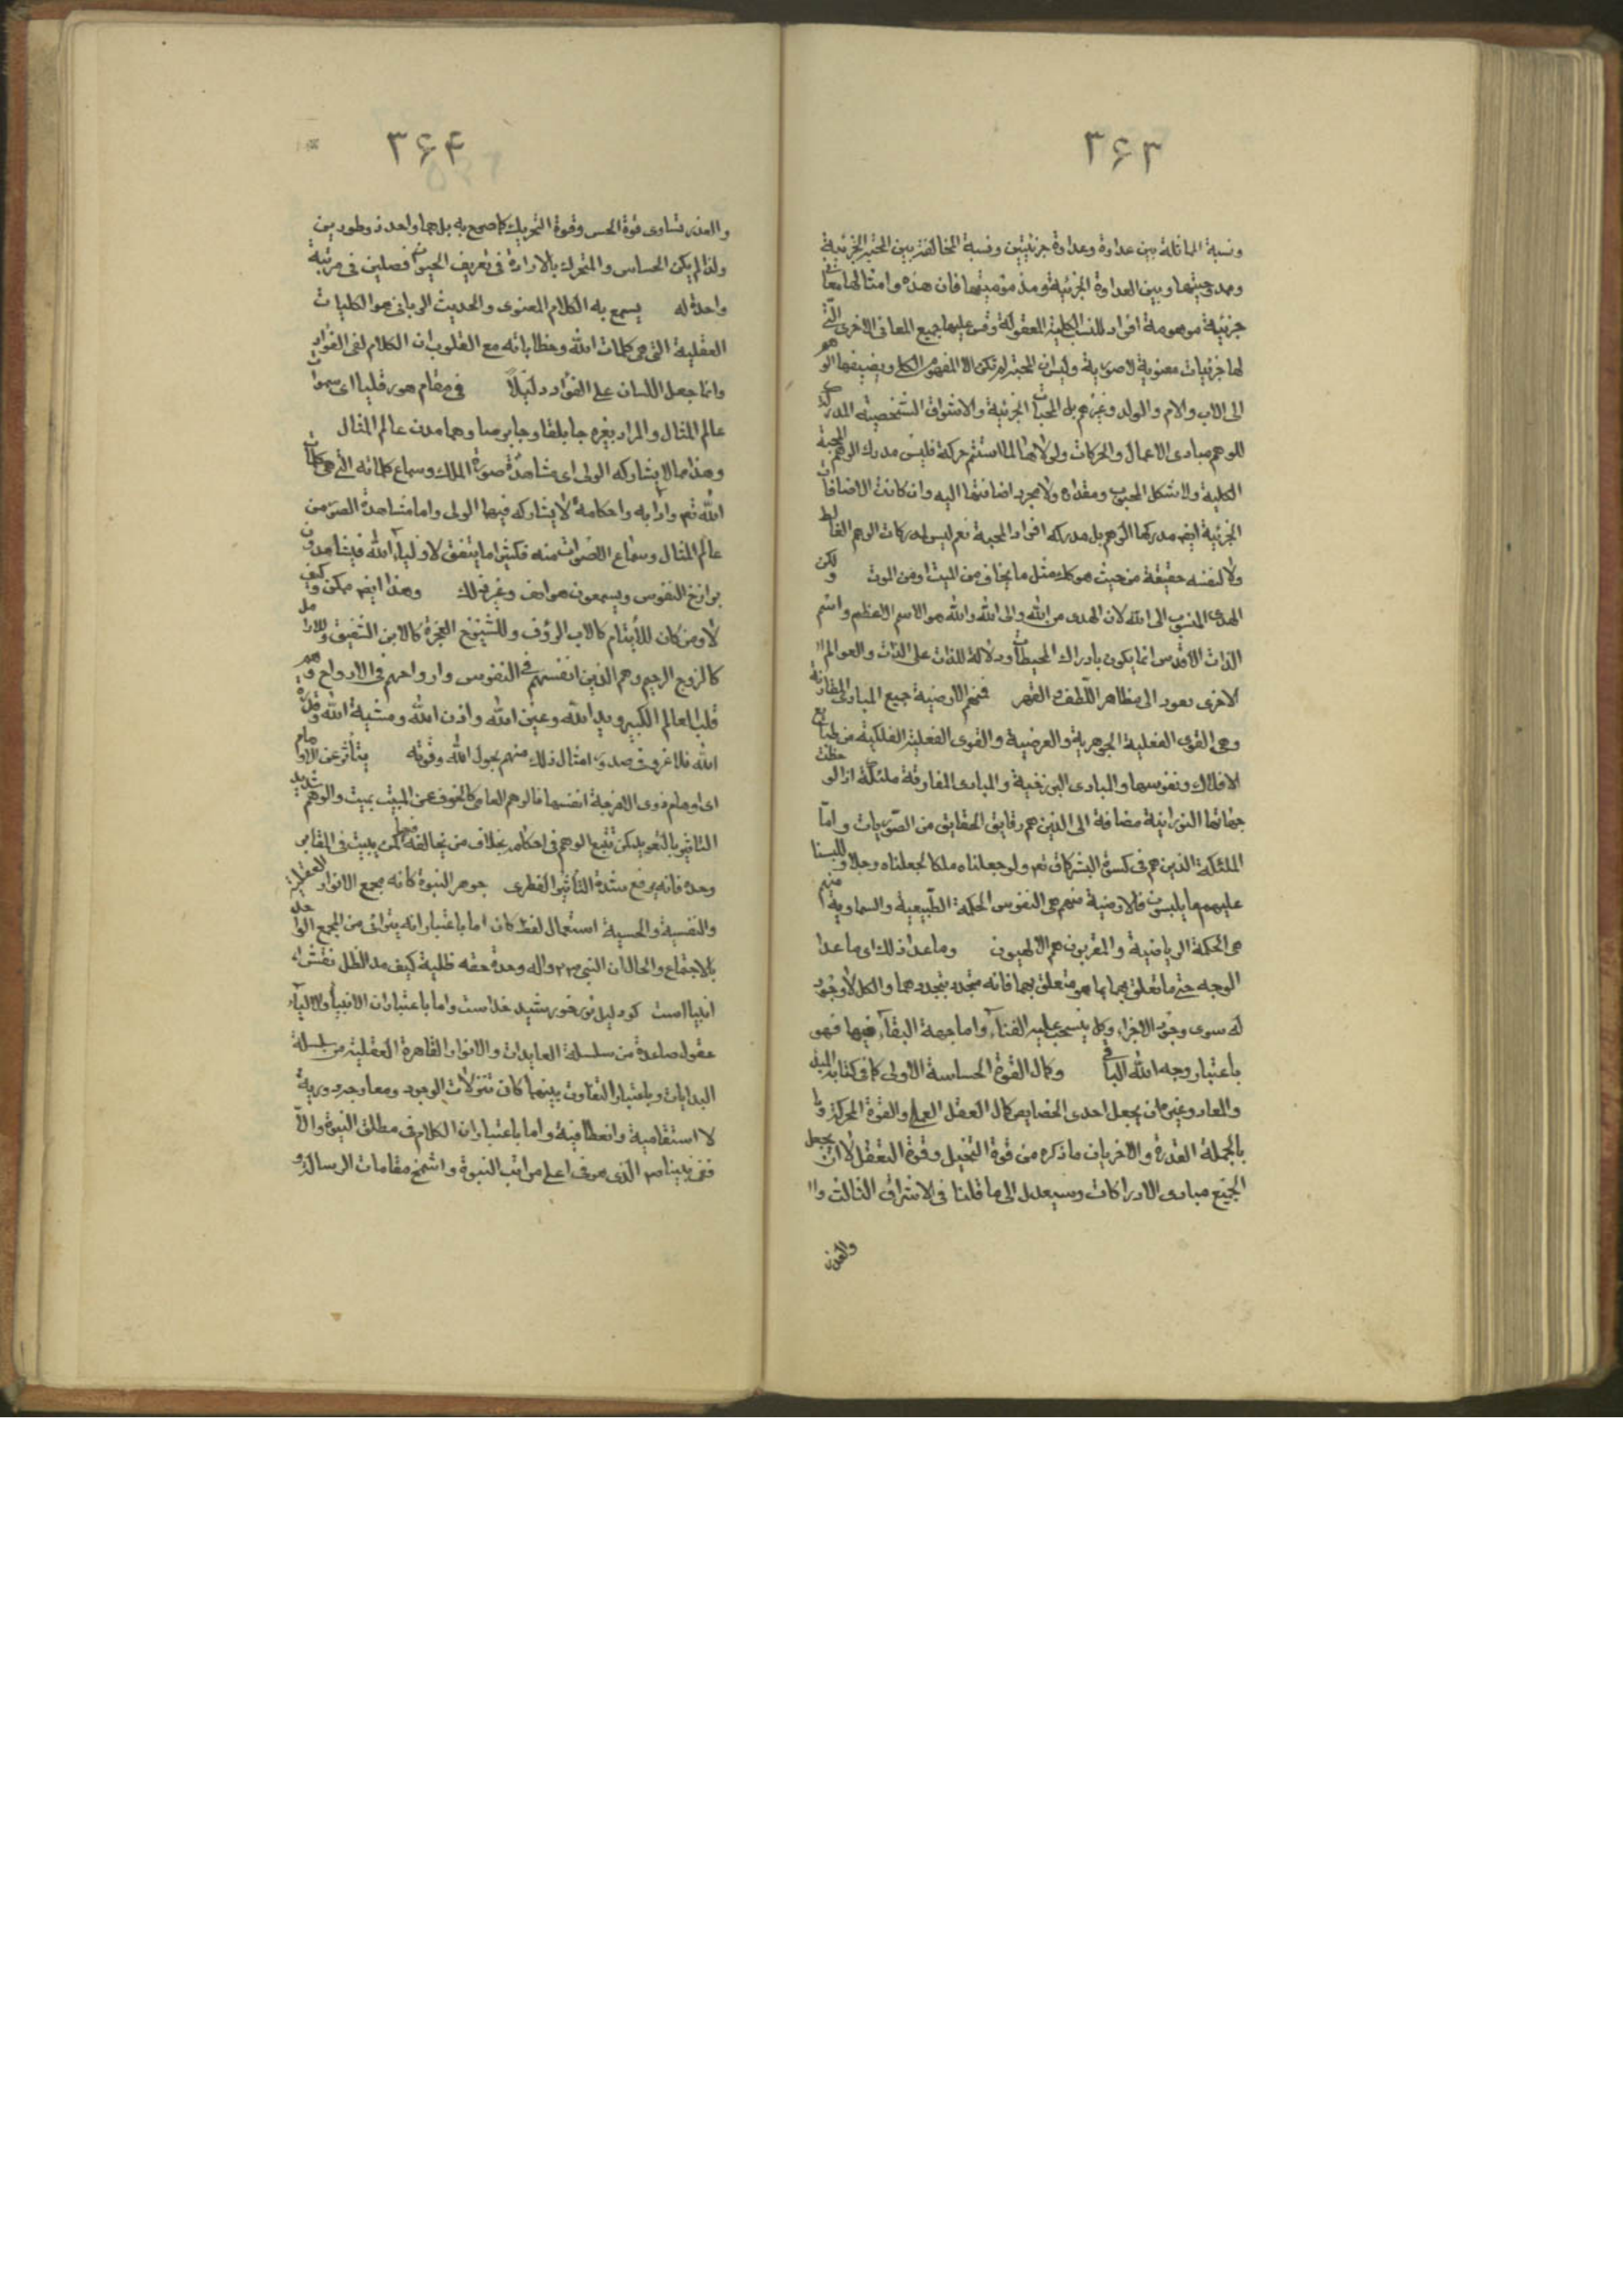 ۳۶۳
ونسبة المماثلة بين عداوة وعداوة جزئيتين ونسبة المخالفة بين المحبة الجزئية
وممدوحيتها وبين العداوة الجزئية ومذموميتها فان هذه وامثالها معان
جزئية موهومة افراد للنسب الكلية المعقولة وقس عليها جميع المعانى الاخرى التى
لها جزئيات معنوية لا صورية وليس ان المحبة لم تكن الا المفهوم الكلى ويضيفها الوهم
الى الاب والام والولد وغيرهم بل المحبات الجزئية والاشواق الشخصية المدركة
للوهم مبادى الاعمال والحركات ولولاها لما استتم حركة فليس مدرك الوهم المحبة
الكلية ولا شكل المحبوب ومقداره ولا مجرد اضافتها اليه وان كانت الاضافات
الجزئية ايضا مدركها الوهم بل مدركه افراد المحبة نعم ليس لمدركات الوهم الغالط
ولا لنفسه حقيقة من حيث هو كك مثل ما يخاف من الميت او من الموت ولكن
الهدى المنسوب الى الله لان الهدى من الله والى الله والله هو الاسم الاعظم واسم
الذات الاقدس انما يكون بادراك المحيطات ودلالة للذات على الذات والعوالم ال
الاخرى تعود الى مظاهر اللطف والقهر فمنهم الارضية جميع المبادى المقارنة
وهى القوى الفعلية الجوهرية والعرضية والقوى الفعلية الفلكية من طبايع
الافلاك ونفوسها والمبادى البرزخية والمبادى المفارقة ملئكة اذا لوحظت
جهاتها النورانية مضافة الى الذين هم رقايق الحقايق من الصوريات واما
الملئكة الذين هم فى كسوة البشر كما قال تعم ولو جعلناه ملكا لجعلناه رجلا وللبسنا
عليهم ما يلبسون فالارضية منهم هى النفوس الحكمة الطبيعية والسماوية منهم
هى الحكمة الرياضية والمقربون هم الالهيون وما عدا ذلك اى ما عدا
الوجه حتى ما تعلق بهما بما هو متعلق بهما فانه متجدد بتجددهما والكل لا وجود
له سوى وجود الاجزاء وكل ينسحب عليه الفناء واما جهة البقاء فيها فهو
باعتبار وجه الله الباقى وكمال القوة الحساسة الاولى كما فى كتابه المبدء
والمعاد وغيره ان يجعل احدى الخصايص كمال العقل العملى والقوة المحركة وبا
بالجملة القدرة والاخريان ما ذكره من قوة التخيل وقوة التعقل لا ان يجعل
الجميع مبادى الادراكات وسيعدل الى ما قلنا فى الاشراق الثالث وا
والعذر
۳۶۴
والعذر تساوى قوة الحس وقوة التحريك كما صرح به بل هما واحد ذو طورين
ولذا لم يكن الحساس والمتحرك بالارادة فى تعريف الحيوان فصلين فى مرتبة
واحدة له يسمع به الكلام المعنوى والحديث الربانى هو الكليات
العقلية التى هى كلمات الله وخطاباته مع القلوب ان الكلام لفى الفؤاد
وانما جعل اللسان على الفؤاد دليلا فى مقام هورقليا اى سموات
عالم المثال والمراد بغيره جابلقا وجابرصا وهما مدن عالم المثال
وهذا مما لا يشاركه الولى اى مشاهدة صورة الملك وسماع كلماته التى هى كلمات
الله تعم وآدابه واحكامه لا يشاركه فيها الولى واما مشاهدة الصور من
عالم المثال وسماع الاصوات منه فكثيرا ما يتفق لاولياء الله فيشاهدون
برازخ النفوس ويسمعون هواتف وغير ذلك وهذا ايضا ممكن وكيف
لا ومن كان للايتام كالاب الرؤف وللشيوخ العجزة كالابن الشفيق وللارامل
كالزوج الرحيم وهم الذين انفسهم فى النفوس وارواحهم فى الارواح وهم
قلب العالم الكبير ويد الله وعين الله واذن الله ومشية الله وقدرة
الله فلا غرو فى صدور امثال ذلك منهم بحول الله وقوته يتأثر عن الاوهام
اى اوهام ذوى الامزجة انفسها فالوهم العامى كالخوف عن الميت بميت والوهم شديد
التاثير بالتعويد لكن تتبع الوهم فى احكامه بخلاف من يخالفه فيها كمن يبيت فى المقابر
وحده فانه يرفع شدة التأثير الفطرى جوهر النبوة كانه مجمع الانوار العقلية
والنفسية والحسية استعمال لفظ كان اما باعتبار انه يترائى من المجمع الواحد
بالاجتماع والحال ان النبى ص واله وحدة حقه ظلية كيف مد الظل نقش
انبياست كو دليل نور خورشيد خداست واما باعتبار ان الانبياء والاولياء
عقول صاعدة من سلسلة العايدات والانوار القاهرة العقلية من سلسلة
البدايات وباعتبار التفاوت بينهما كان تنزلات الوجود ومعارجه دورية
لا استقامية وانعطافية واما باعتبار ان الكلام فى مطلق النبوة والا
ففى نبينا ص الذى هو فى اعلى مراتب النبوة واشمخ مقامات الرسالة و